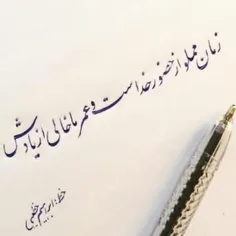 زمان مملو از حضور خداست و عمر ما خالی از یادش
خط: ابراهیم حلمی